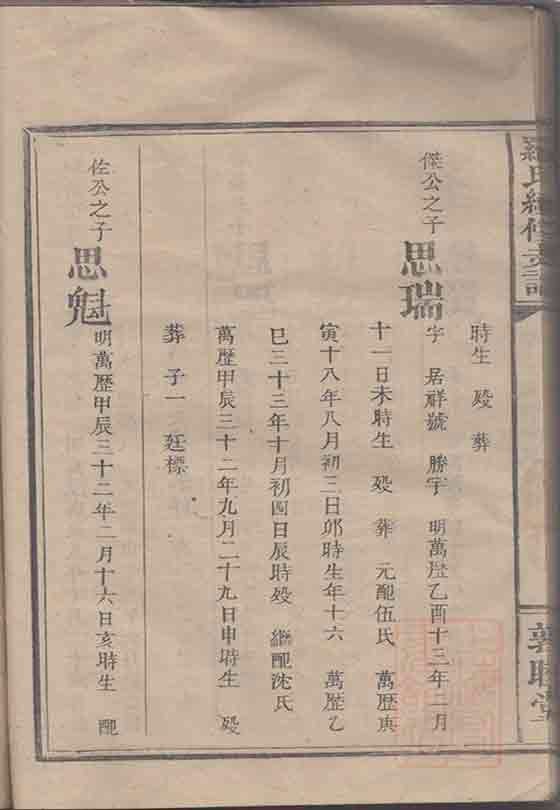 羅氏續修支譜
敦睦堂
時生 殁 葬
傑公之子 思瑞
字 居祥號 勝宇 明萬歷乙酉十三年三月
十一日未時生 殁 葬 元配伍氏 萬歷庚
寅十八年八月初三日卯時生年十六 萬歷乙
巳三十三年十月初四日辰時殁 繼配沈氏
萬歷甲辰三十二年九月二十九日申時生 殁
葬 子一 廷標
佐公之子 思魁
明萬歷甲辰三十二年二月十六日亥時生 配